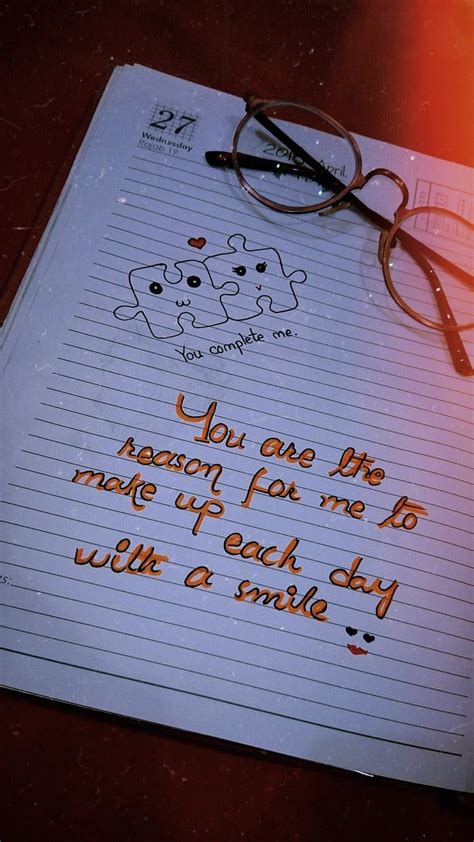 27
Wednesday
Rajab 19
April
You complete me.
You are the
reason for me to
make up each day
with a smile